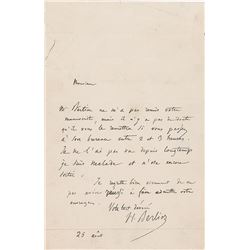 Monsieur
Mr Bertin ne m'a pas remis votre
manuscrit, mais il n'y a pas de doute
qu'il vous le remettra si vous passez
à son bureau entre 2 et 3 heures.
Je ne l'ai pas vu depuis longtemps
je suis malade et n'ai encore
sortir.
Je regrette bien vivement de n'a
pas réussi à faire admettre votre
ouvrage.
Votre tout dévoué
H Berlioz
25 août